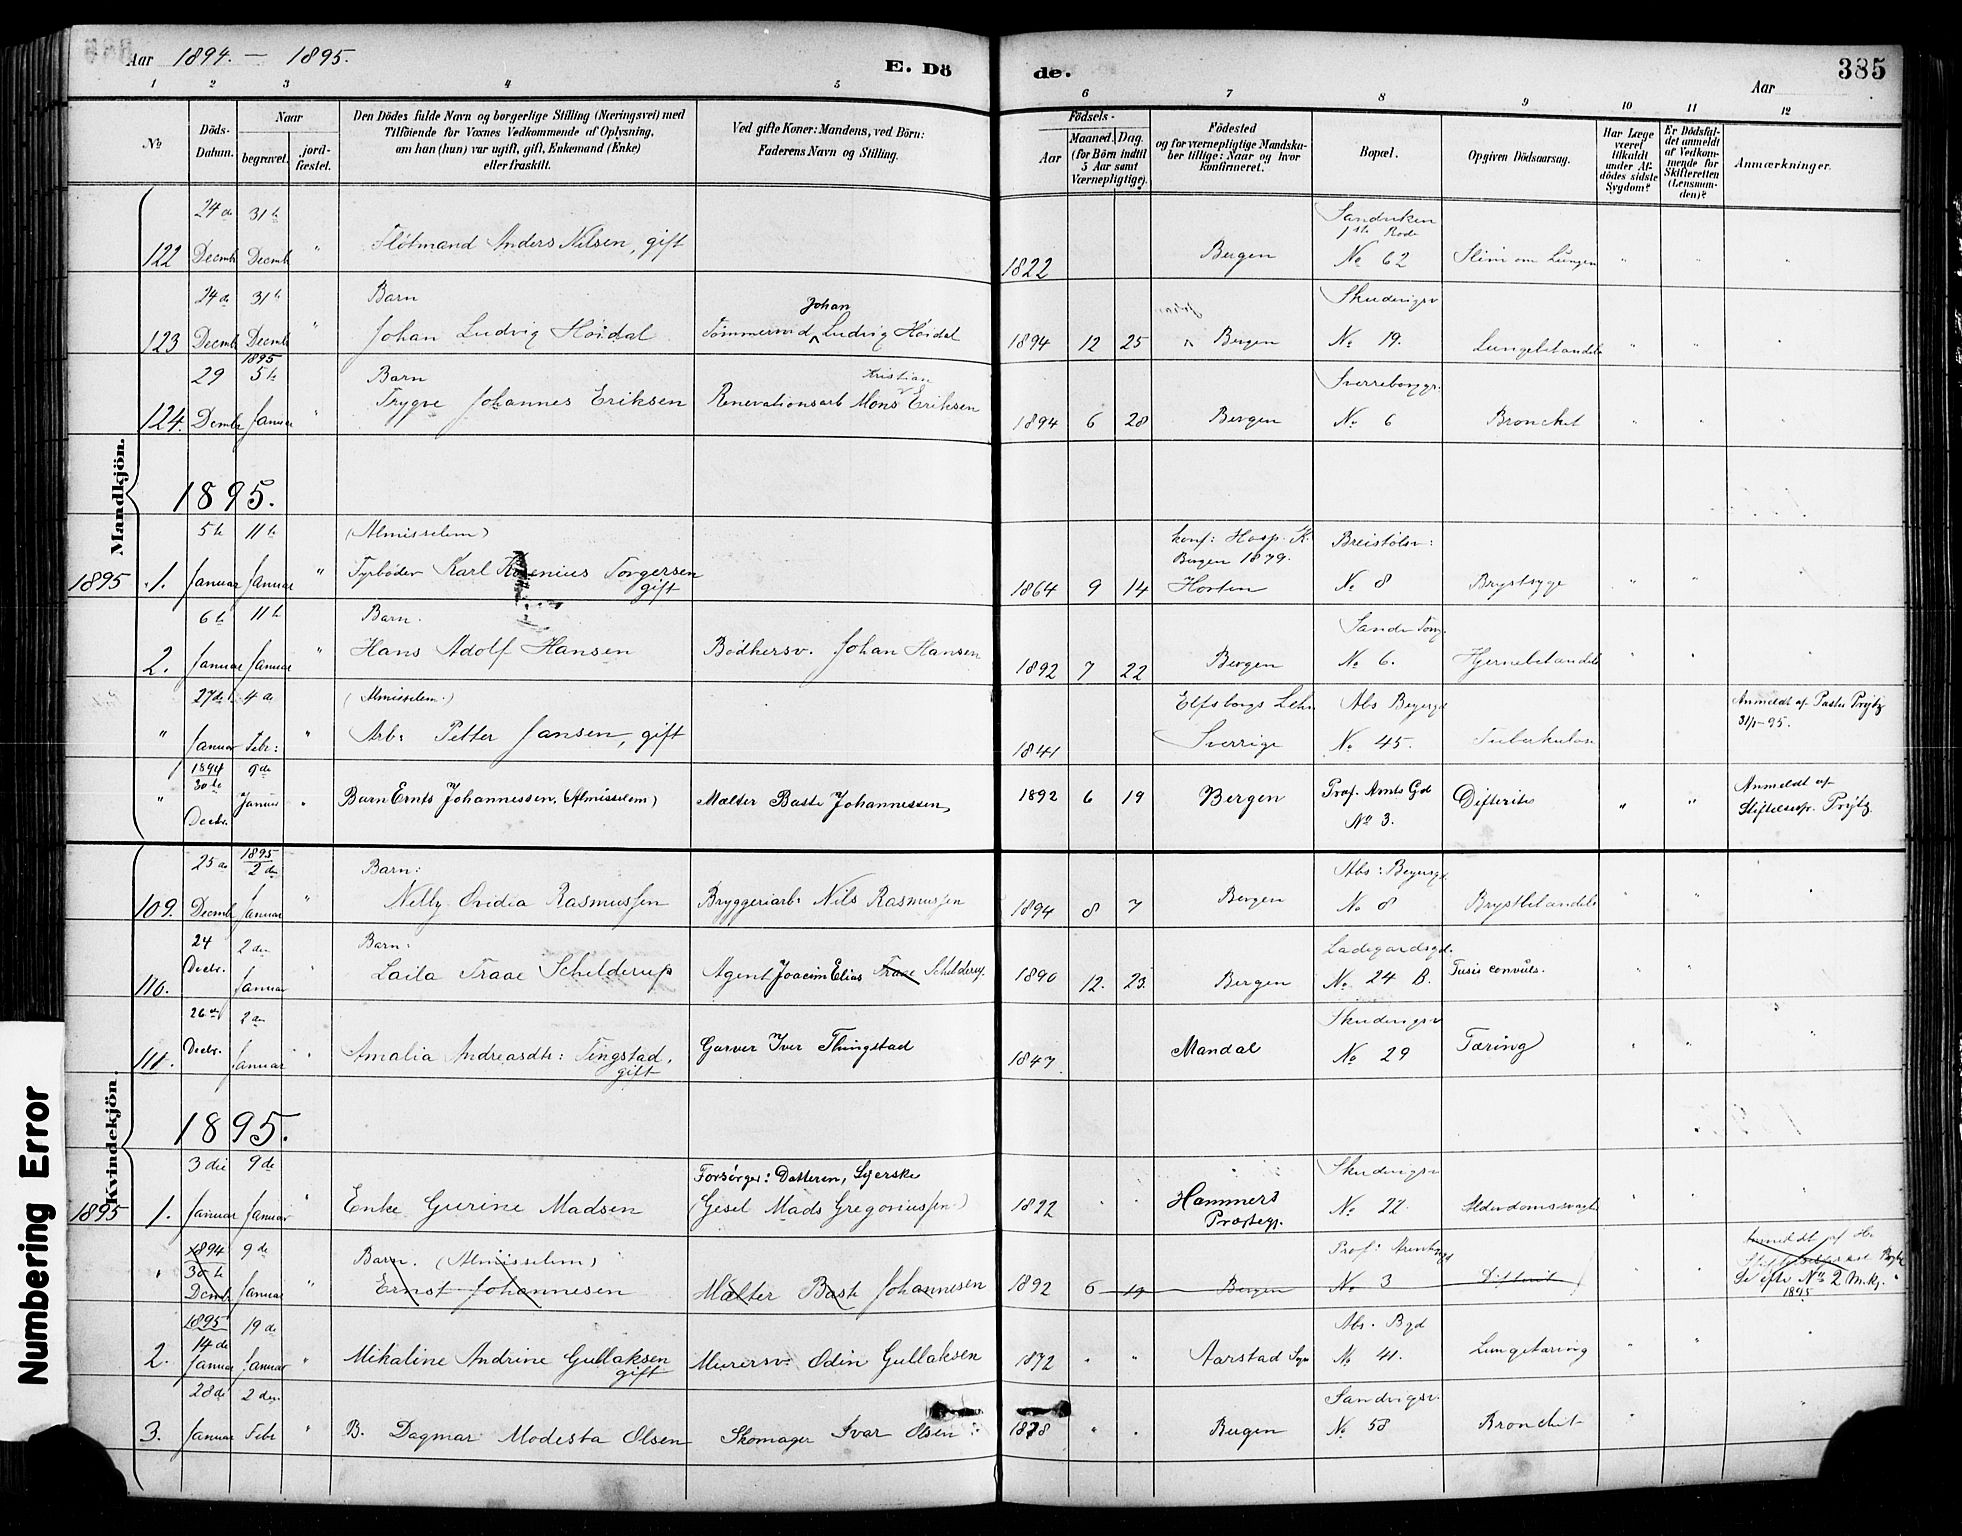 Aar 1894. — 1895.
E. Dö
de.
Aar
385
1 2 3 4 5 6 7 8 9 10 11 12
No
Döds-Datum.
Naar
begravet.
jord-fæstet.
Den Dödes fulde Navn og borgerlige Stilling (Næringsvei) med
Tilföiende for Voxnes Vedkommende af Oplysning,
om han (hun) var ugift, gift, Enkemand (Enke)
eller fraskilt.
Ved gifte Koner: Mandens, ved Börn:
Faderens Navn og Stilling.
Födsels-
Aar
Maaned. Dag.
(for Börn indtil
5 Aar samt
Værnepligtige).
Födested
og for værnepligtige Mandska-
ber tillige: Naar og hvor
konfirmeret.
Bopæl.
Opgiven Dödsaarsag.
Har Læge
været
tilkaldt
under Af-
dödes sidste
Sygdom?
Er Dödsfal-
det anmeldt
af Vedkom-
mende for
Skifteretten
(Lensman-
den)?
Anmærkninger.
Mandkjön.
122 24de Decmb 31te Decmb " Flötmand Anders Nilsen, gift 1822 Bergen Sandviken 1ste Rode No 62 Slim om Lungen " " "
123 24de Decmb 31te Decmb " Barn Johan Ludvig Höidal Tömmermd Johan Ludvig Höidal 1894 12 25 Bergen Skudevigsv No 19. Lungebetændels " " "
124. 29 Dcmb 1895 5te Januar " Barn Trygve Johannes Eriksen Renovationsarb Mons Kristian Eriksen 1894 6 28 Bergen Sverreborggr. No 6 Bronchit " " "
1895.
1895 1. 5te Januar 11te Januar " (Almisselem) Fyrböder Karl Rosenius Torgersen gift 1864 9 14 konf: Hosp. K. Bergen 1879. Horten Breistölsv: No 8 Brystsyge " " "
2. 6te Januar 11te Januar " Barn. Hans Adolf Hansen Bödkersv. Johan Hansen 1892 7 22 Bergen Sandv Torv. No 6. Hjernebetændels " " "
" 27de Januar 4de Febr: " (Almisselem.) Arb: Petter Jansen, gift 1841 Elfsborgs Lehn Sverrige Abs Beyersgd No 45. Tuberkulose Anmeldt af Pastor Prytz 31/1-95.
" 1894 30te Decbr. 9de Januar " Barn Ernts Johannessen. (Almisselem) Mælter Baste Johannessen, 1892 6 19 Bergen Prof. Arnts Gd No 3. Difterites " " Anmeldt af Stiftelsespr. Prÿtz.
Kvindekjön.
109. 25de Decmb 1895 2den Januar " Barn: Nelly Ovidia Rasmussen Bryggeriarb: Nils Rasmussen 1894 8 7 Bergen Abs: Beyersgd. No 8 Brystbetændels " " "
110. 24 Decbr. 2den Januar " Barn: Laila Traae Schelderup Agent Joacim Elias Traae Schelderup. 1890 12. 23. Bergen Ladegaardsgd. No 24 B. Tusis convuls. " "
111. 26de Decbr. 2den Januar " Amalia Andreasdtr: Tingstad, gift Garver Iver Thingstad 1847. Mandal Skudevigsv No 29 Tæring " "
1895.
1895 1. 3die Januar 9de Januar " Enke Gurine Madsen Forsørges: Datteren, Syerske (Gesel Mads Gregoriussen.) 1822 " " Hammers Præstegj. Skudevigsv No 22. Alderdomssvagh " " "
" 1894 30te Dcmb 9de Januar " Barn. (Almisselem) Ernst Johannesen Mælter Baste Johannesen 1892 6 19 Bergen Prof: Arentzgd No 3 Difterit " " Anmeldt af Se efter No 2 M.kj. 1895
2. 1895 14de Januar 19de Januar " Mikaline Andrine Gullaksen gift Murersv. Odin Gullaksen 1872 " " Aarstad Sogn Abs. Bgd No 41. Lungetæring " "
3. 28de Januar 2den Febr " B. Dagmar Modesta Olsen Skomager Ivar Olsen 1878 " " Bergen Sandvigsv. No 58 Bronchit " "
Numbering Error